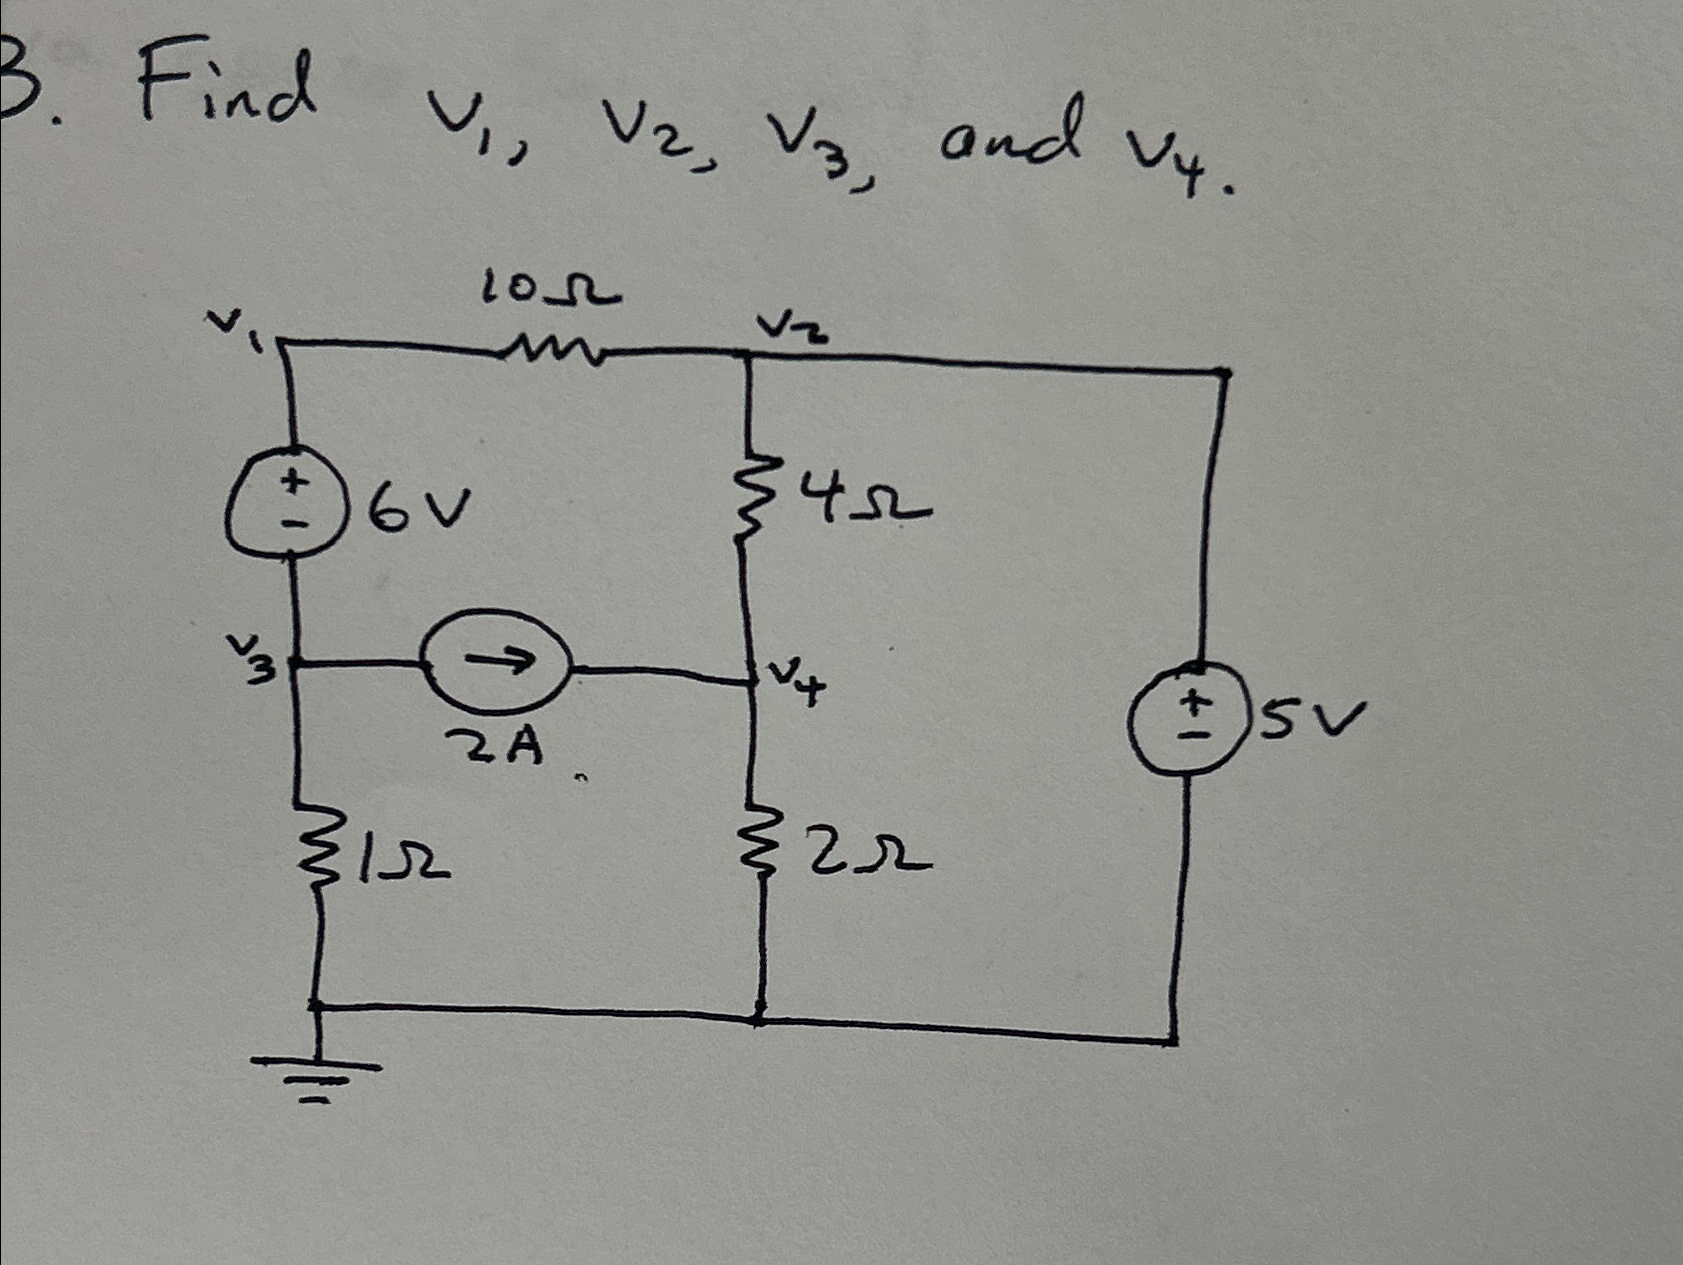 3. Find v1, v2, v3, and v4.
10Ω
v1
v2
+
-
6V
4Ω
v3
→
2A
v4
+
-
5V
1Ω
2Ω